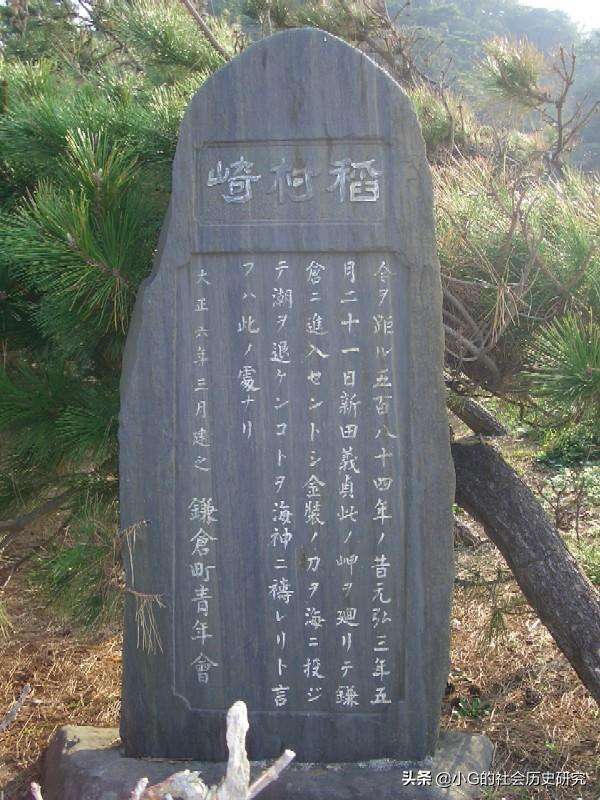 稻村崎
今ヲ距ル五百八十四年ノ昔元弘三年五
月二十一日新田義貞此ノ岬ヲ廻リテ鎌
倉ニ進入セントシ金裝ノ刀ヲ海ニ投ジ
テ潮ヲ退ケンコトヲ海神ニ禱レリト言
フハ此ノ處ナリ
大正六年三月建之 鎌倉町青年會
头条 @小G的社会历史研究